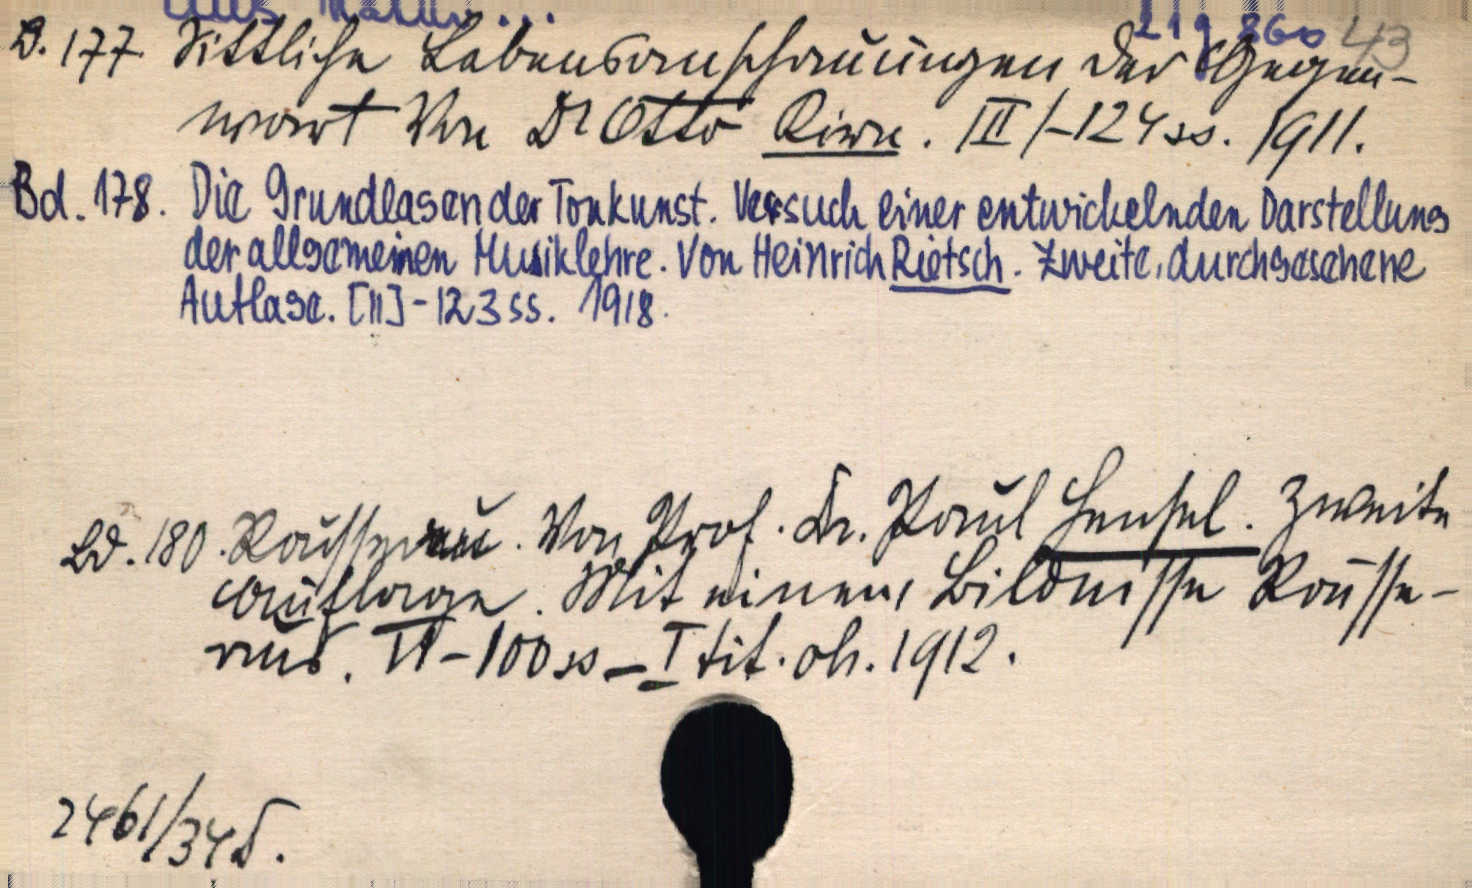 aus Natur...
219 860 43
B. 177. Sittliche Lebensanschauungen der Gegen-
wart Von Dr Otto Kirn. III/-124 ss. 1911.
Bd. 178. Die Grundlagen der Tonkunst. Versuch einer entwickelnden Darstellung
der allgemeinen Musiklehre. Von Heinrich Rietsch. Zweite, durchgesehene
Auflage. [II]-123 ss. 1918.
Bd. 180. Rousseau. Von Prof. Dr. Paul Hensel. Zweite
Auflage. Mit einem Bildnisse Rousse-
aus. II-100 ss - I tit. oh. 1912.
2461/345.